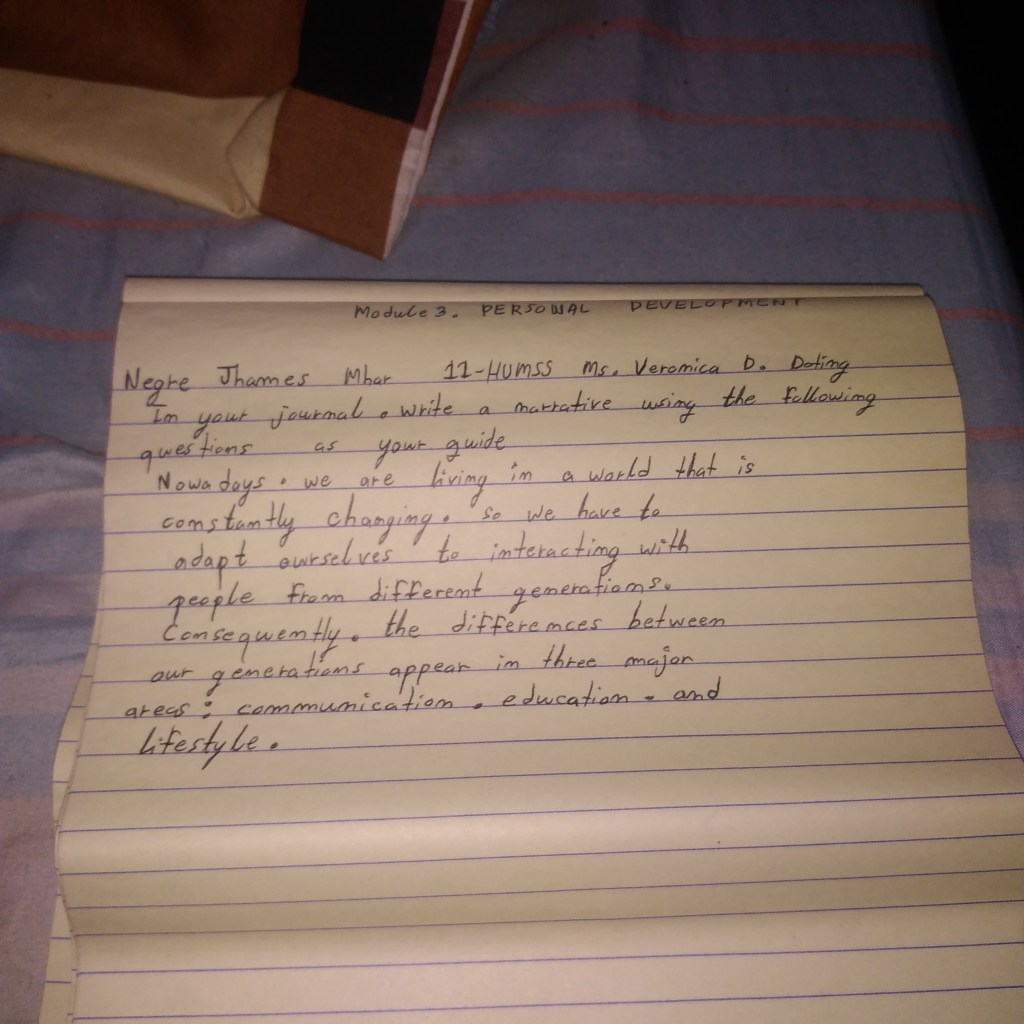 Module 3. PERSONAL DEVELOPMENT
Negre Jhames Mhar 11-HUMSS Ms. Veronica D. Doting
In your journal. write a narrative using the following
questions as your guide
Nowadays. we are living in a world that is
constantly changing. so we have to
adapt ourselves to interacting with
people from different generations.
Consequently. the differences between
our generations appear in three major
areas: communication. education. and
lifestyle.